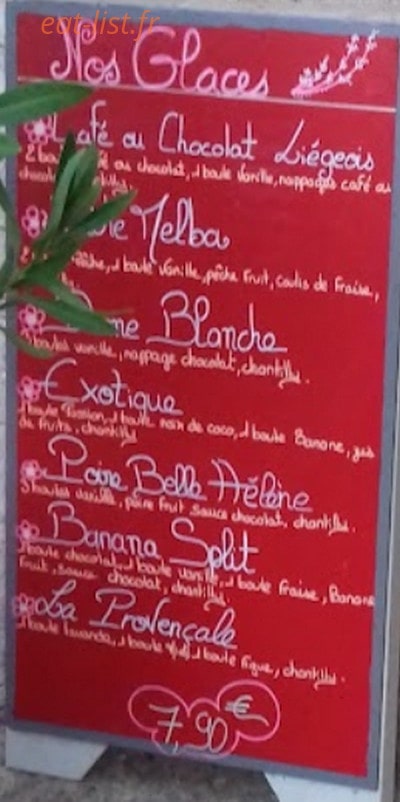 eat-list.fr
Nos Glaces
Café ou Chocolat Liégeois
2 café ou chocolat, 1 boule vanille, nappages café ou
Melba
pêche, 1 boule vanille, pêche fruit, coulis de fraise,
Dame Blanche
3 boules vanille, nappage chocolat, chantilly.
Exotique
1 boule Passion, 1 boule noix de coco, 1 boule Banane, jus
de fruits, chantilly
Poire Belle Hélène
3 boules vanille, poire fruit sauce chocolat, chantilly.
Banana Split
1 boule chocolat, 1 boule vanille, 1 boule Fraise, Banane
fruit, sauce chocolat, chantilly.
La Provençale
1 boule lavande, 1 boule 1 boule figue, chantilly.
7,90€